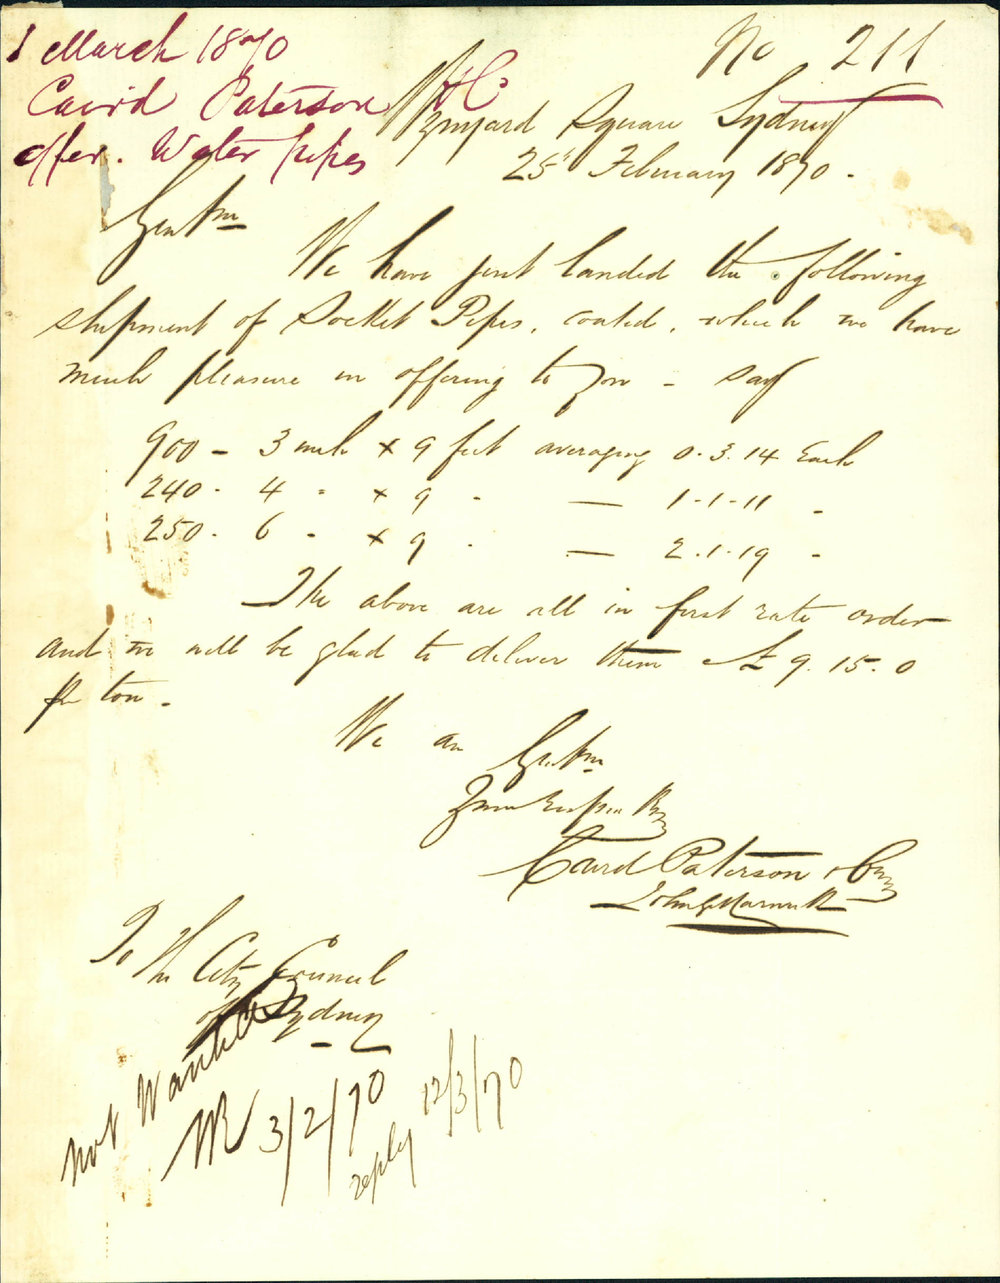 1 March 1870
Caird Paterson &Co
offer. Water pipes
No 211
Wynyard Square Sydney
25 February 1870.
Gentm
We have just landed the following
shipment of Socket Pipes, coated, which we have
much pleasure in offering to you - say
900 - 3 inch x 9 feet averaging 0.3.14 Each
240 - 4 " x 9 " — 1-1-11 "
250 - 6 " x 9 " — 2.1.19 "
The above are all in first rate order
and we will be glad to deliver them at £9.15.0
per ton.
We are Gentm
Caird Paterson & Co
To The City Council
of Sydney
Not Wanted
3/2/70
reply 12/3/70